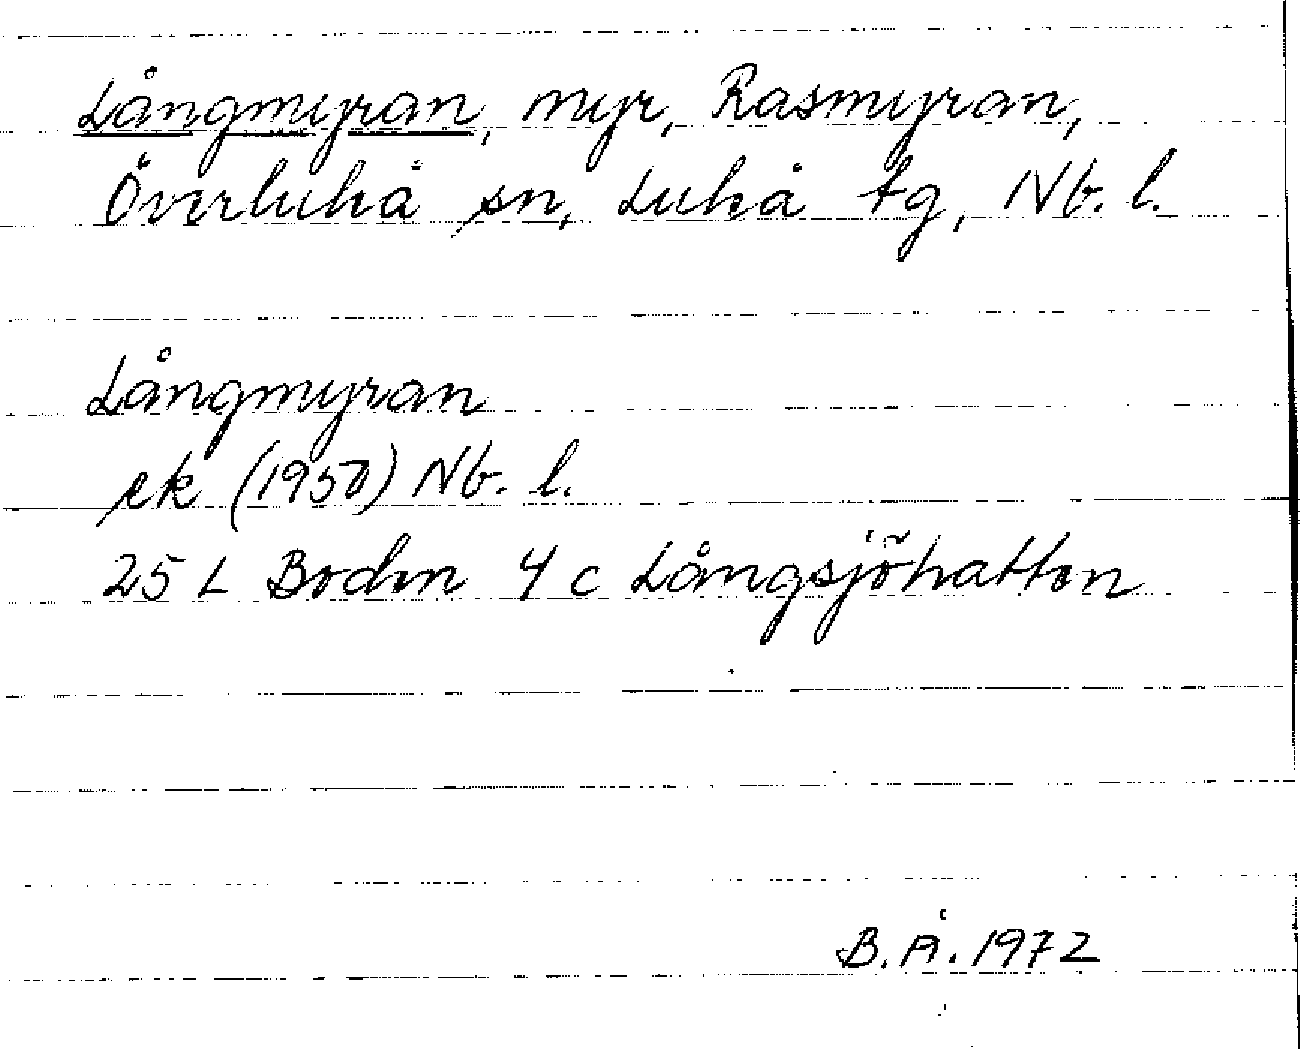 Långmyran, myr, Rasmyran,
Överluleå sn, Luleå tg, Nb. l.
Långmyran
ek (1950) Nb. l.
25 L Boden 4 c Långsjöhatten
B. Å. 1972